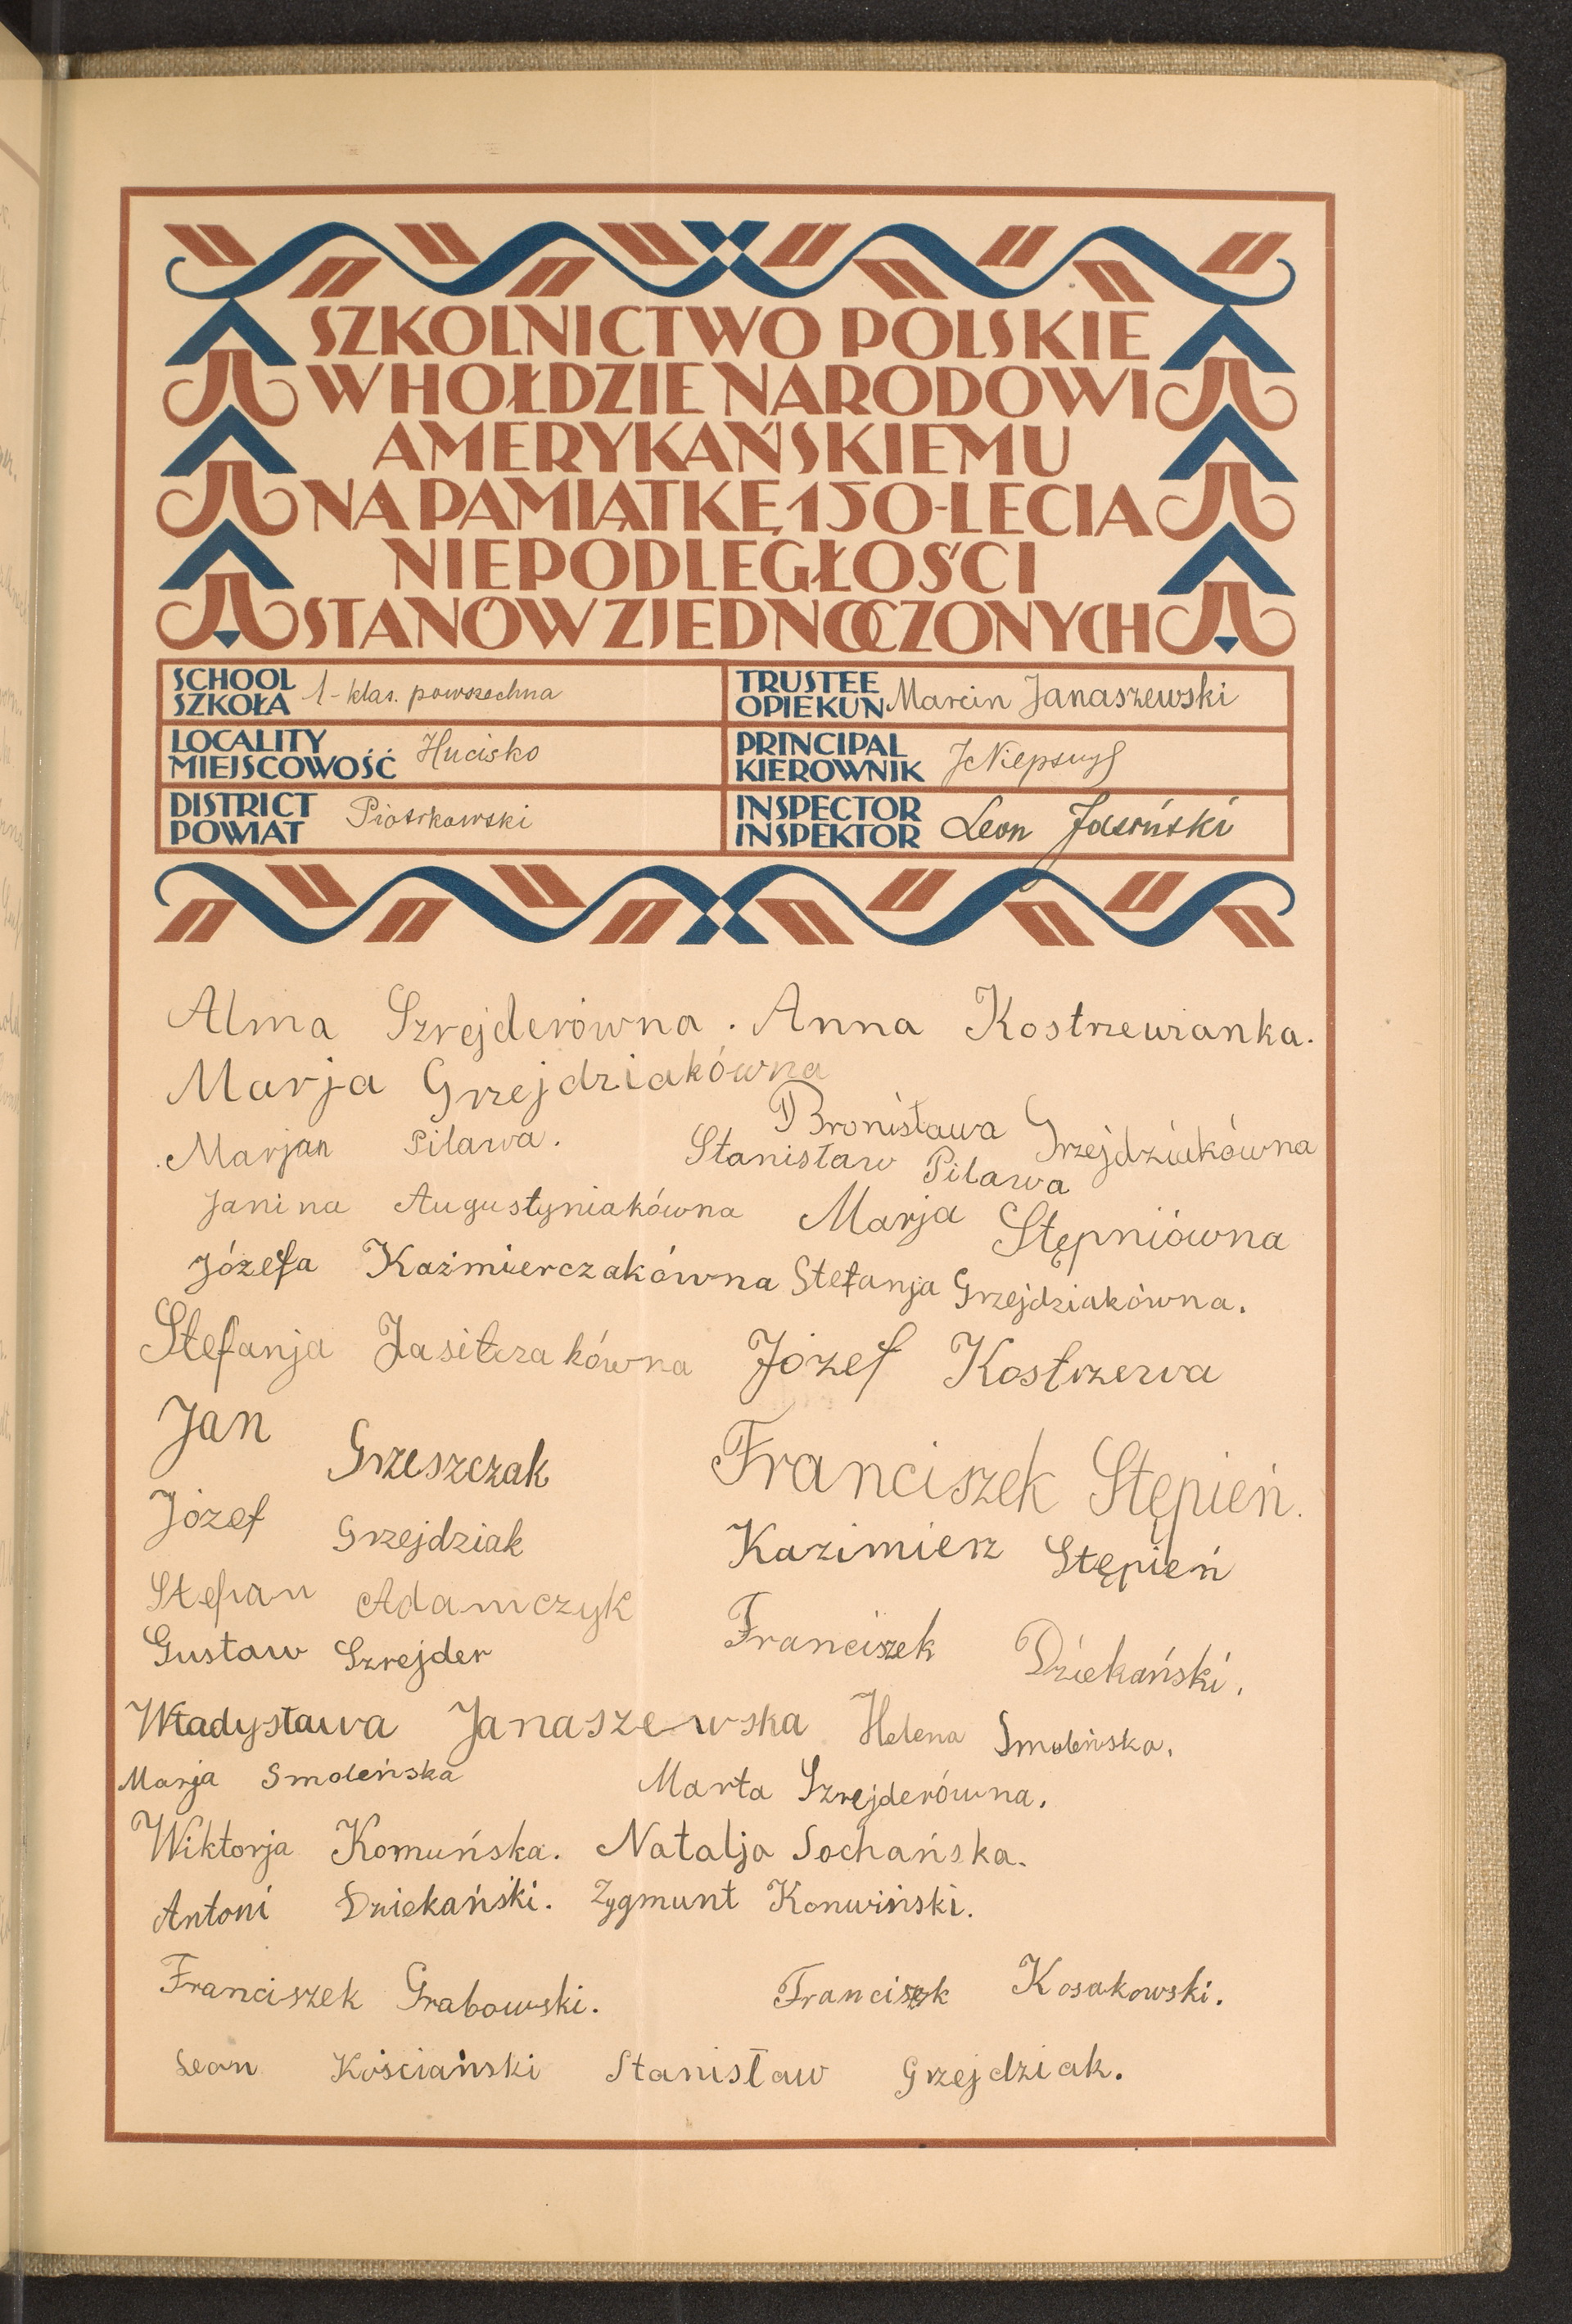 SZKOLNICTWO POLSKIE
W HOŁDZIE NARODOWI
AMERYKAŃSKIEMU
NA PAMIĄTKĘ 150-LECIA
NIEPODLEGŁOŚCI
STANÓW ZJEDNOCZONYCH
SCHOOL
SZKOŁA 1-klas. powszechna
TRUSTEE
OPIEKUN Marcin Janaszewski
LOCALITY
MIEJSCOWOŚĆ Hucisko
PRINCIPAL
KIEROWNIK
DISTRICT
POWIAT Piotrkowski
INSPECTOR
INSPEKTOR Leon Jasiński
Alma Szrejderówna. Anna Kostrzewianka.
Marja Grzejdziakówna
Bronisława Grzejdziakówna
Marjan Pilawa. Stanisław Pilawa
Janina Augustyniakówna Marja Stępniówna
Józefa Kaźmierczakówna Stefanja Grzejdziakówna.
Stefanja Józef Kostrzewa
Jan Grzeszczak Franciszek Stępień.
Józef Grzejdziak Kazimierz Stępień
Stefan Adamczyk
Gustaw Szrejder Franciszek Dziekański.
Władysława Janaszewska Helena Smoleńska.
Marja Smoleńska Marta Szrejderówna.
Wiktorja Komuńska. Natalja Sochańska.
Antoni Dziekański. Zygmunt Konwiński.
Franciszek Grabowski. Franciszek Kosakowski.
Leon Kościański Stanisław Grzejdziak.